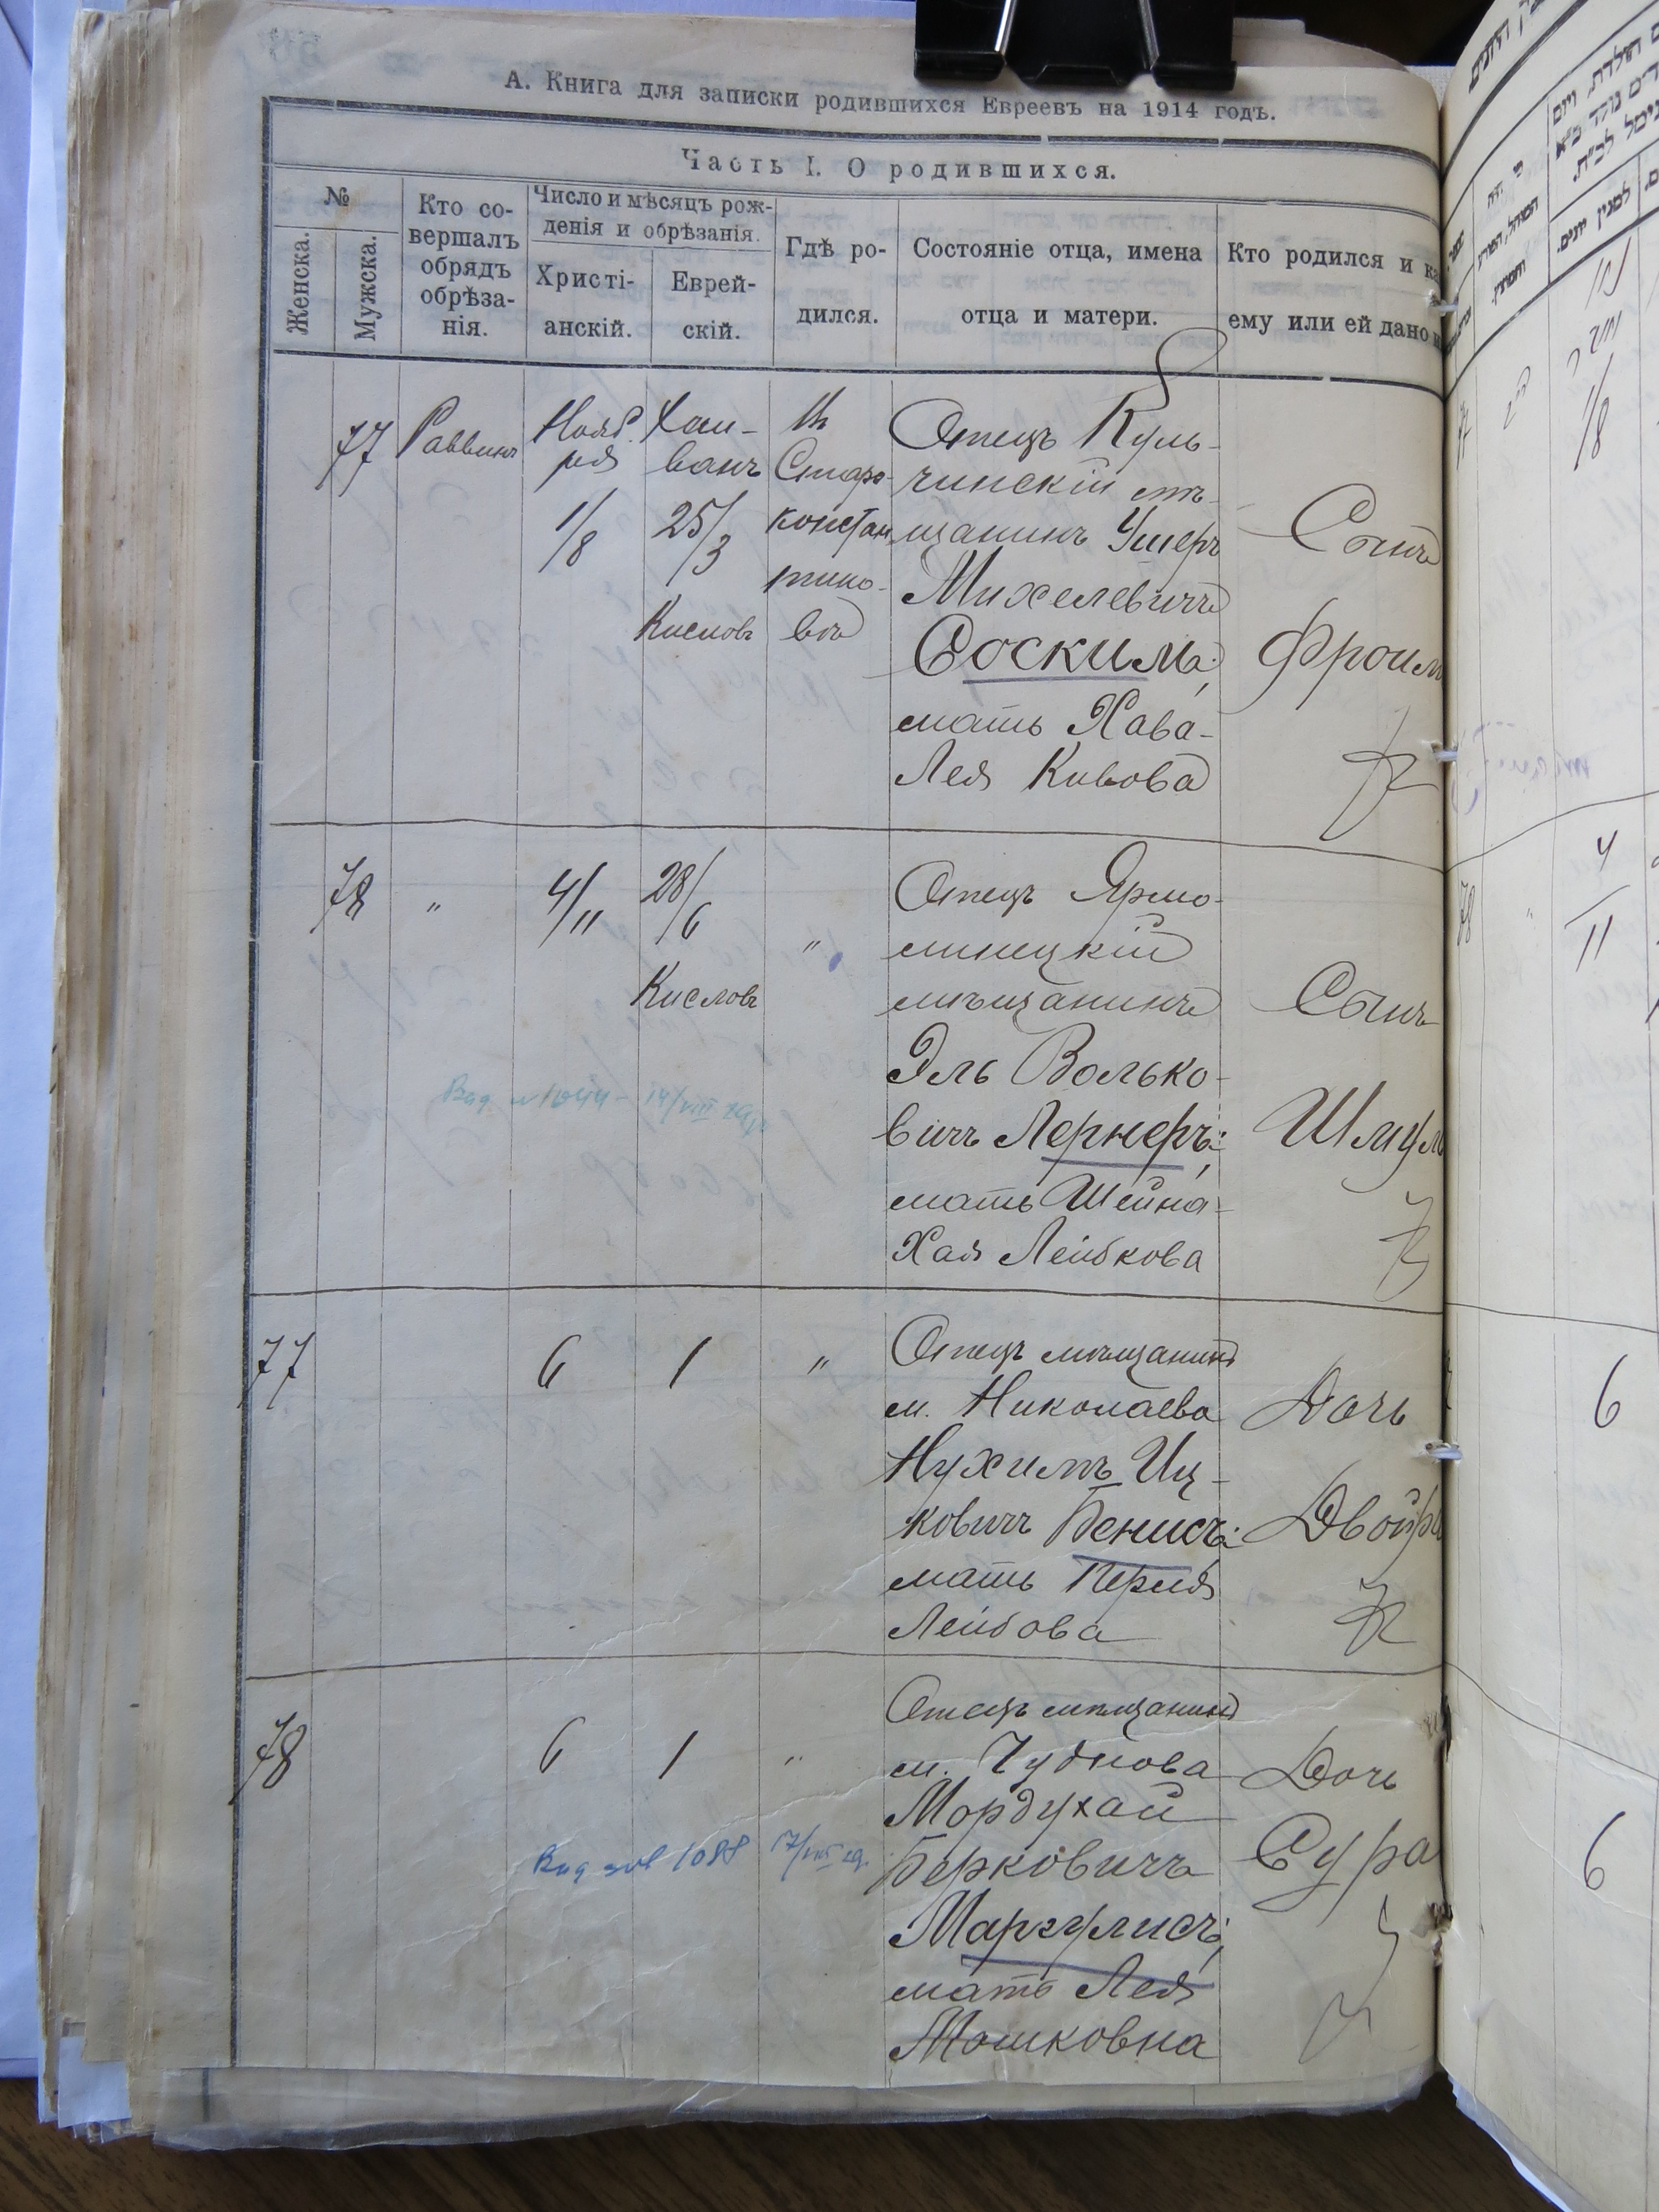 А. Книга для записки родившихся Евреевъ на 1914 годъ.
Часть I. О родившихся.
№
Женска.
Мужска.
Кто со-
вершалъ
обрядъ
обрѣза-
нія.
Число и мѣсяцъ рож-
денія и обрѣзанія.
Христі-
анскій.
Еврей-
скій.
Гдѣ ро-
дился.
Состояніе отца, имена
отца и матери.
Кто родился и
ему или ей дано
77
Раввинъ
Нояб
ря
1/8
Хаш-
ванъ
25/3
Кислов
Въ
Старо-
констан
тино-
вѣ
Отецъ Куль-
чинскій мѣ-
щанинъ Ушеръ
Михелевичъ
Соскимъ;
мать Хава-
Лея Кивова
Сынъ
Фроим
78
"
4/11
28/6
Кислов
"
Отецъ Ярмо-
линецкій
мѣщанинъ
Эль Волько-
вичъ Лернеръ;
мать Шейна-
Хая Лейбкова
Сынъ
Шмул
14/VIII 29
77
6
1
"
Отецъ мѣщанинъ
м. Николаева
Нухимъ Иц-
ковичъ Бенисъ;
мать Перля
Лейбова
Дочь
Двойра
78
6
1
"
Отецъ мѣщанинъ
м. Чуднова
Мордухай
Берковичъ
Маргулисъ;
мать Лея
Мошковна
Дочь
Сура
1088 17/VIII 29.
1/8
78
4
11
6
6